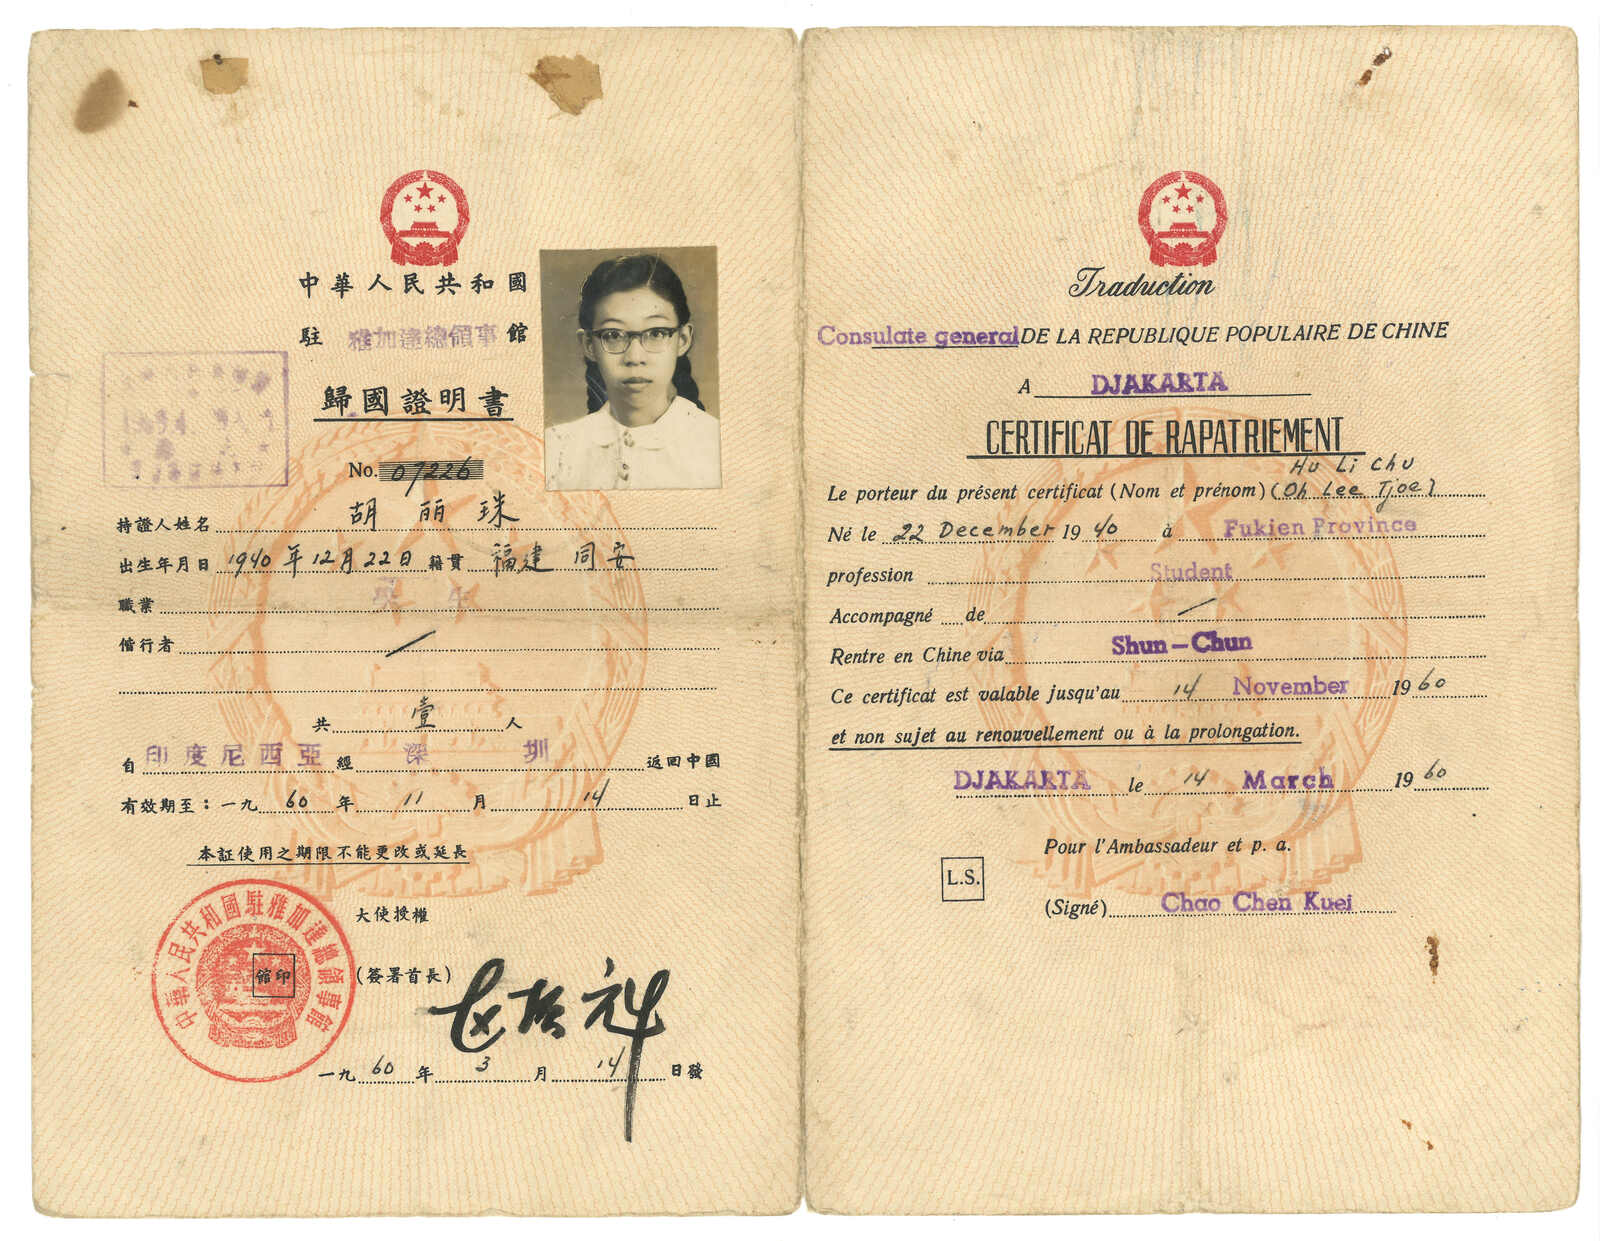 中華人民共和國
駐 雅加達總領事 館
歸國證明書
No. 07226
持證人姓名 胡丽珠
出生年月日 1940年12月22日 籍貫 福建同安
職業
偕行者 /
共 壹 人
自 印度尼西亞 經 深圳 返回中國
有效期至：一九60年11月14日止
本証使用之期限不能更改或延長
大使授權
(簽署首長)
館印
中華人民共和國駐雅加達總領事館
一九60年3月14日發
Traduction
Consulate general DE LA REPUBLIQUE POPULAIRE DE CHINE
A DJAKARTA
CERTIFICAT DE RAPATRIEMENT
Hu Li Chu
Le porteur du présent certificat (Nom et prénom) (Oh Lee Tjoe)
Né le 22 December 1940 à Fukien Province
profession Student
Accompagné de /
Rentre en Chine via Shun-Chun
Ce certificat est valable jusqu'au 14 November 1960
et non sujet au renouvellement ou à la prolongation.
DJAKARTA le 14 March 1960
Pour l'Ambassadeur et p. a.
L.S.
(Signé) Chao Chen Kuei